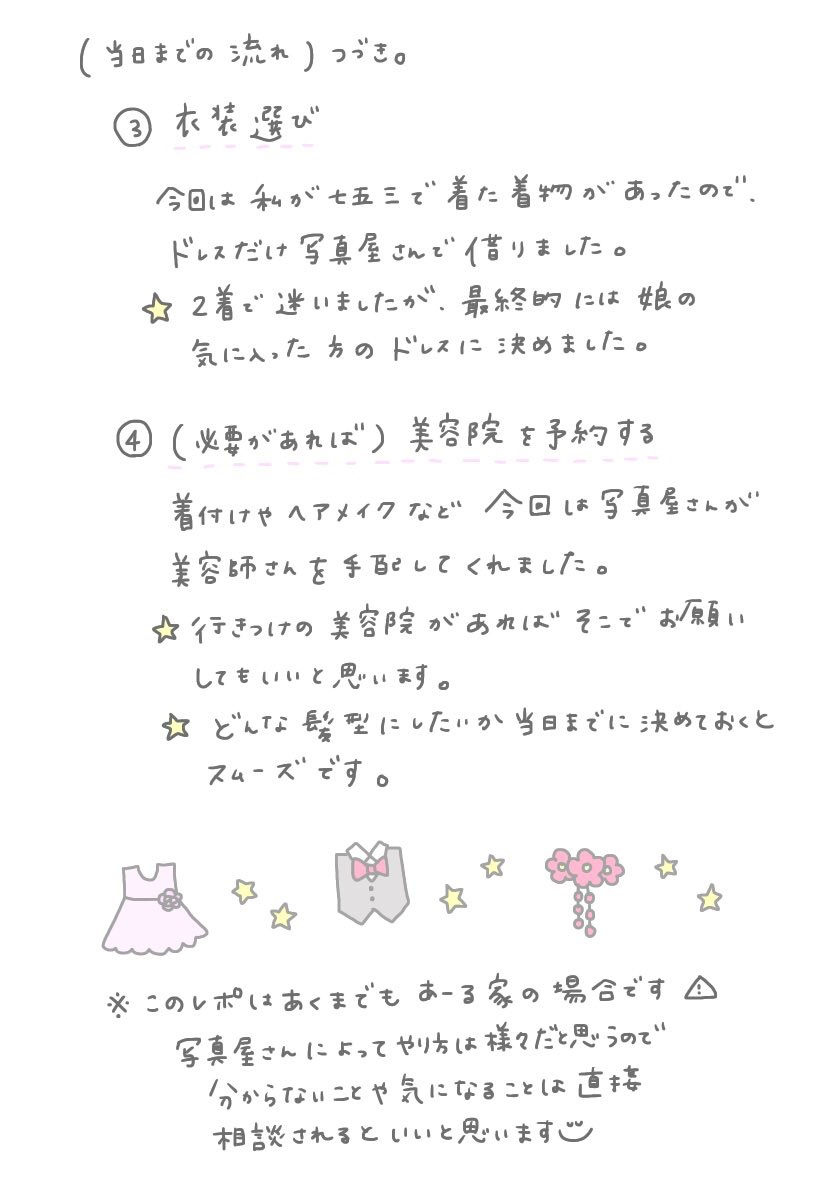 (当日までの流れ)つづき。
③ 衣装選び
今回は私が七五三で着た着物があったので、
ドレスだけ写真屋さんで借りました。
☆ 2着で迷いましたが、最終的には娘の
気に入った方のドレスに決めました。
④ (必要があれば) 美容院を予約する
着付けやヘアメイクなど 今回は写真屋さんが
美容師さんを手配してくれました。
☆ 行きつけの美容院があればそこでお願い
してもいいと思います。
☆ どんな髪型にしたいか当日までに決めておくと
スムーズです。
※このレポはあくまでもあーる家の場合です⚠
写真屋さんによってやり方は様々だと思うので
分からないことや気になることは直接
相談されるといいと思います